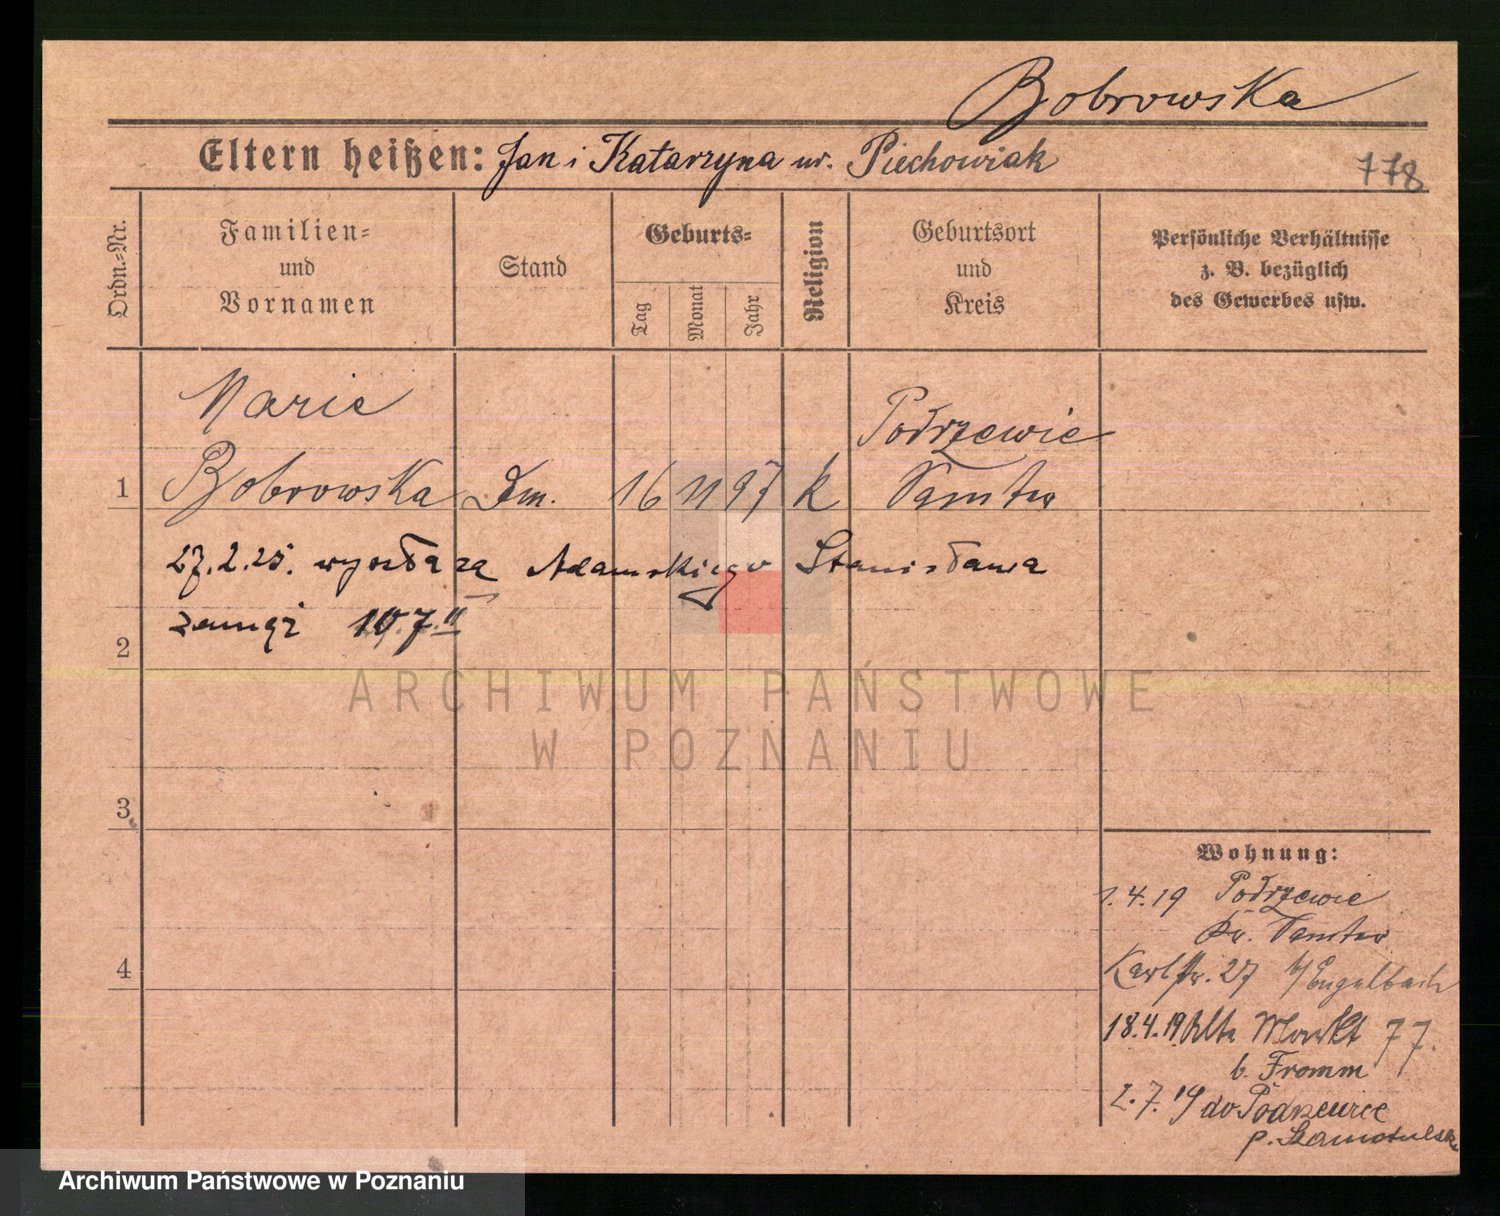 Bobrowska
Eltern heißen: Jan i Katarzyna ur. Piechowiak
778
Ordn.-Nr.
Familien-
und
Vornamen
Stand
Geburts-
Tag
Monat
Jahr
Religion
Geburtsort
und
Kreis
Persönliche Verhältnisse
z. B. bezüglich
des Gewerbes usw.
Marie
Podrzewie
1 Bobrowska Dm. 16 11 97 k Samter
27.2.25. wyszła za Adamskiego Stanisława
zamąż 10.7.
2
ARCHIWUM PAŃSTWOWE
W POZNANIU
3
Wohnung:
1.4.19 Podrzewie
Kr. Samter
4
Karlstr. 27 b/Engelbach
18.4.19 Alte Markt 77.
b. Fromm
2.7.19 do Podrzewie
p. Szamotulski
Archiwum Państwowe w Poznaniu